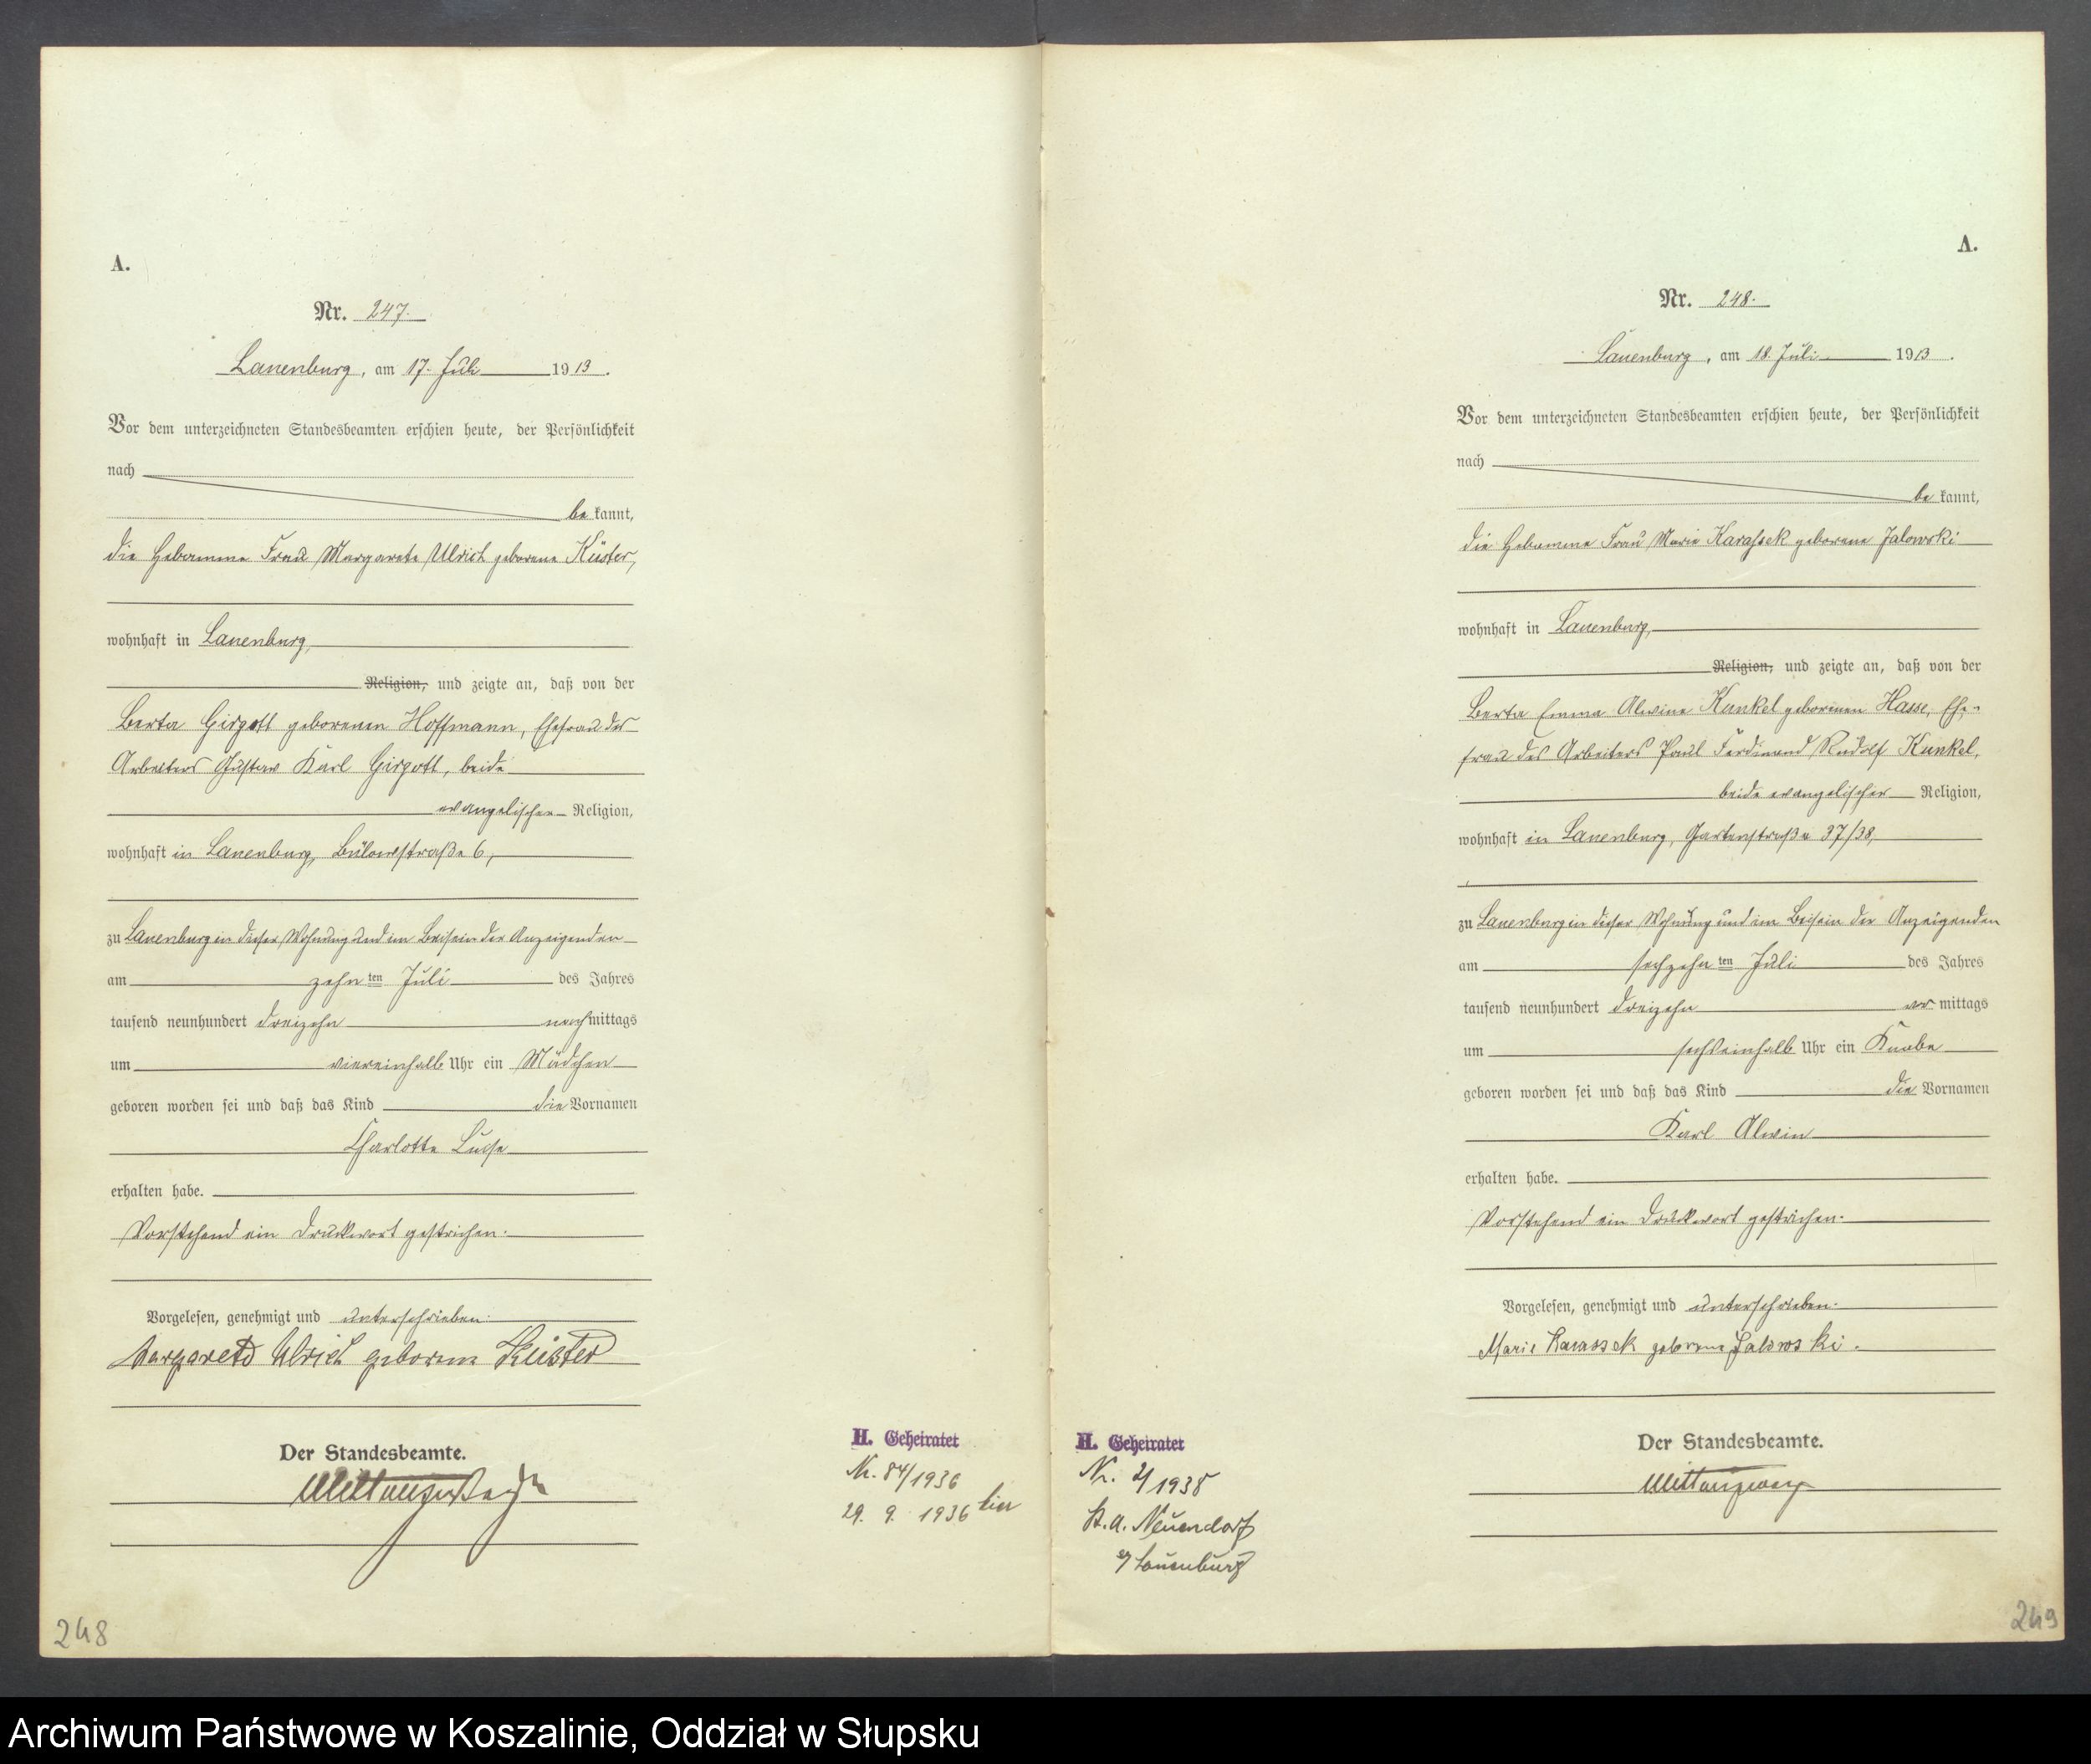 A.
Nr. 247.
Lauenburg, am 17. Juli 1913.
Vor dem unterzeichneten Standesbeamten erschien heute, der Persönlichkeit
nach
bekannt,
die Hebamme Frau Margarete Ulrich geborene Küster,
wohnhaft in Lauenburg,
Religion, und zeigte an, daß von der
Berta Girgott geborenen Hoffmann, Ehefrau des
Arbeiters Gustav Karl Girgott, beide
evangelischer Religion,
wohnhaft in Lauenburg, Bülowstraße 6,
zu Lauenburg in dieser Wohnung und im Beisein der Anzeigenden
am zehnten Juli des Jahres
tausend neunhundert dreizehn nachmittags
um viereinhalb Uhr ein Mädchen
geboren worden sei und daß das Kind die Vornamen
Charlotte Luise
erhalten habe.
Vorstehend ein Druckwort gestrichen.
Vorgelesen, genehmigt und unterschrieben.
Margarete Ulrich geborene Küster
Der Standesbeamte.
H. Geheiratet
Nr. 84/1936
29. 9. 1936 hier
248
A.
Nr. 248.
Lauenburg, am 18. Juli 1913.
Vor dem unterzeichneten Standesbeamten erschien heute, der Persönlichkeit
nach
bekannt,
die Hebamme Frau Marie Karassek geborene Jalowski
wohnhaft in Lauenburg,
Religion, und zeigte an, daß von der
Berta Emma Alwine Kunkel geborenen Hasse, Ehe-
frau des Arbeiters Paul Ferdinand Rudolf Kunkel,
beide evangelischer Religion,
wohnhaft in Lauenburg, Gartenstraße 37/38,
zu Lauenburg in dieser Wohnung und im Beisein der Anzeigenden
am sechzehnten Juli des Jahres
tausend neunhundert dreizehn vormittags
um sechseinhalb Uhr ein Knabe
geboren worden sei und daß das Kind die Vornamen
Karl Alwin
erhalten habe.
Vorstehend ein Druckwort gestrichen.
Vorgelesen, genehmigt und unterschrieben.
Marie Karassek geborene Jalowski.
Der Standesbeamte.
H. Geheiratet
Nr. 2/1938
St. A. Neuendorf
Lauenburg
249
Archiwum Państwowe w Koszalinie, Oddział w Słupsku